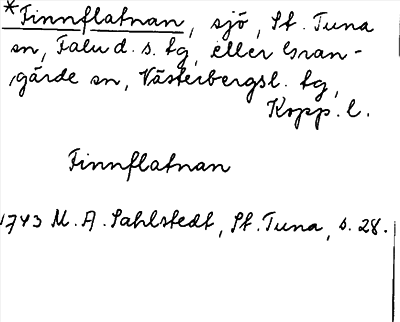 *Finnflatnan, sjö, St. Tuna
sn, Falu d. s. tg, eller Gran-
gärde sn, Västerbergsl. tg,
Kopp. l.
Finnflatnan
1743 M. A. Sahlstedt, St. Tuna, s. 28.